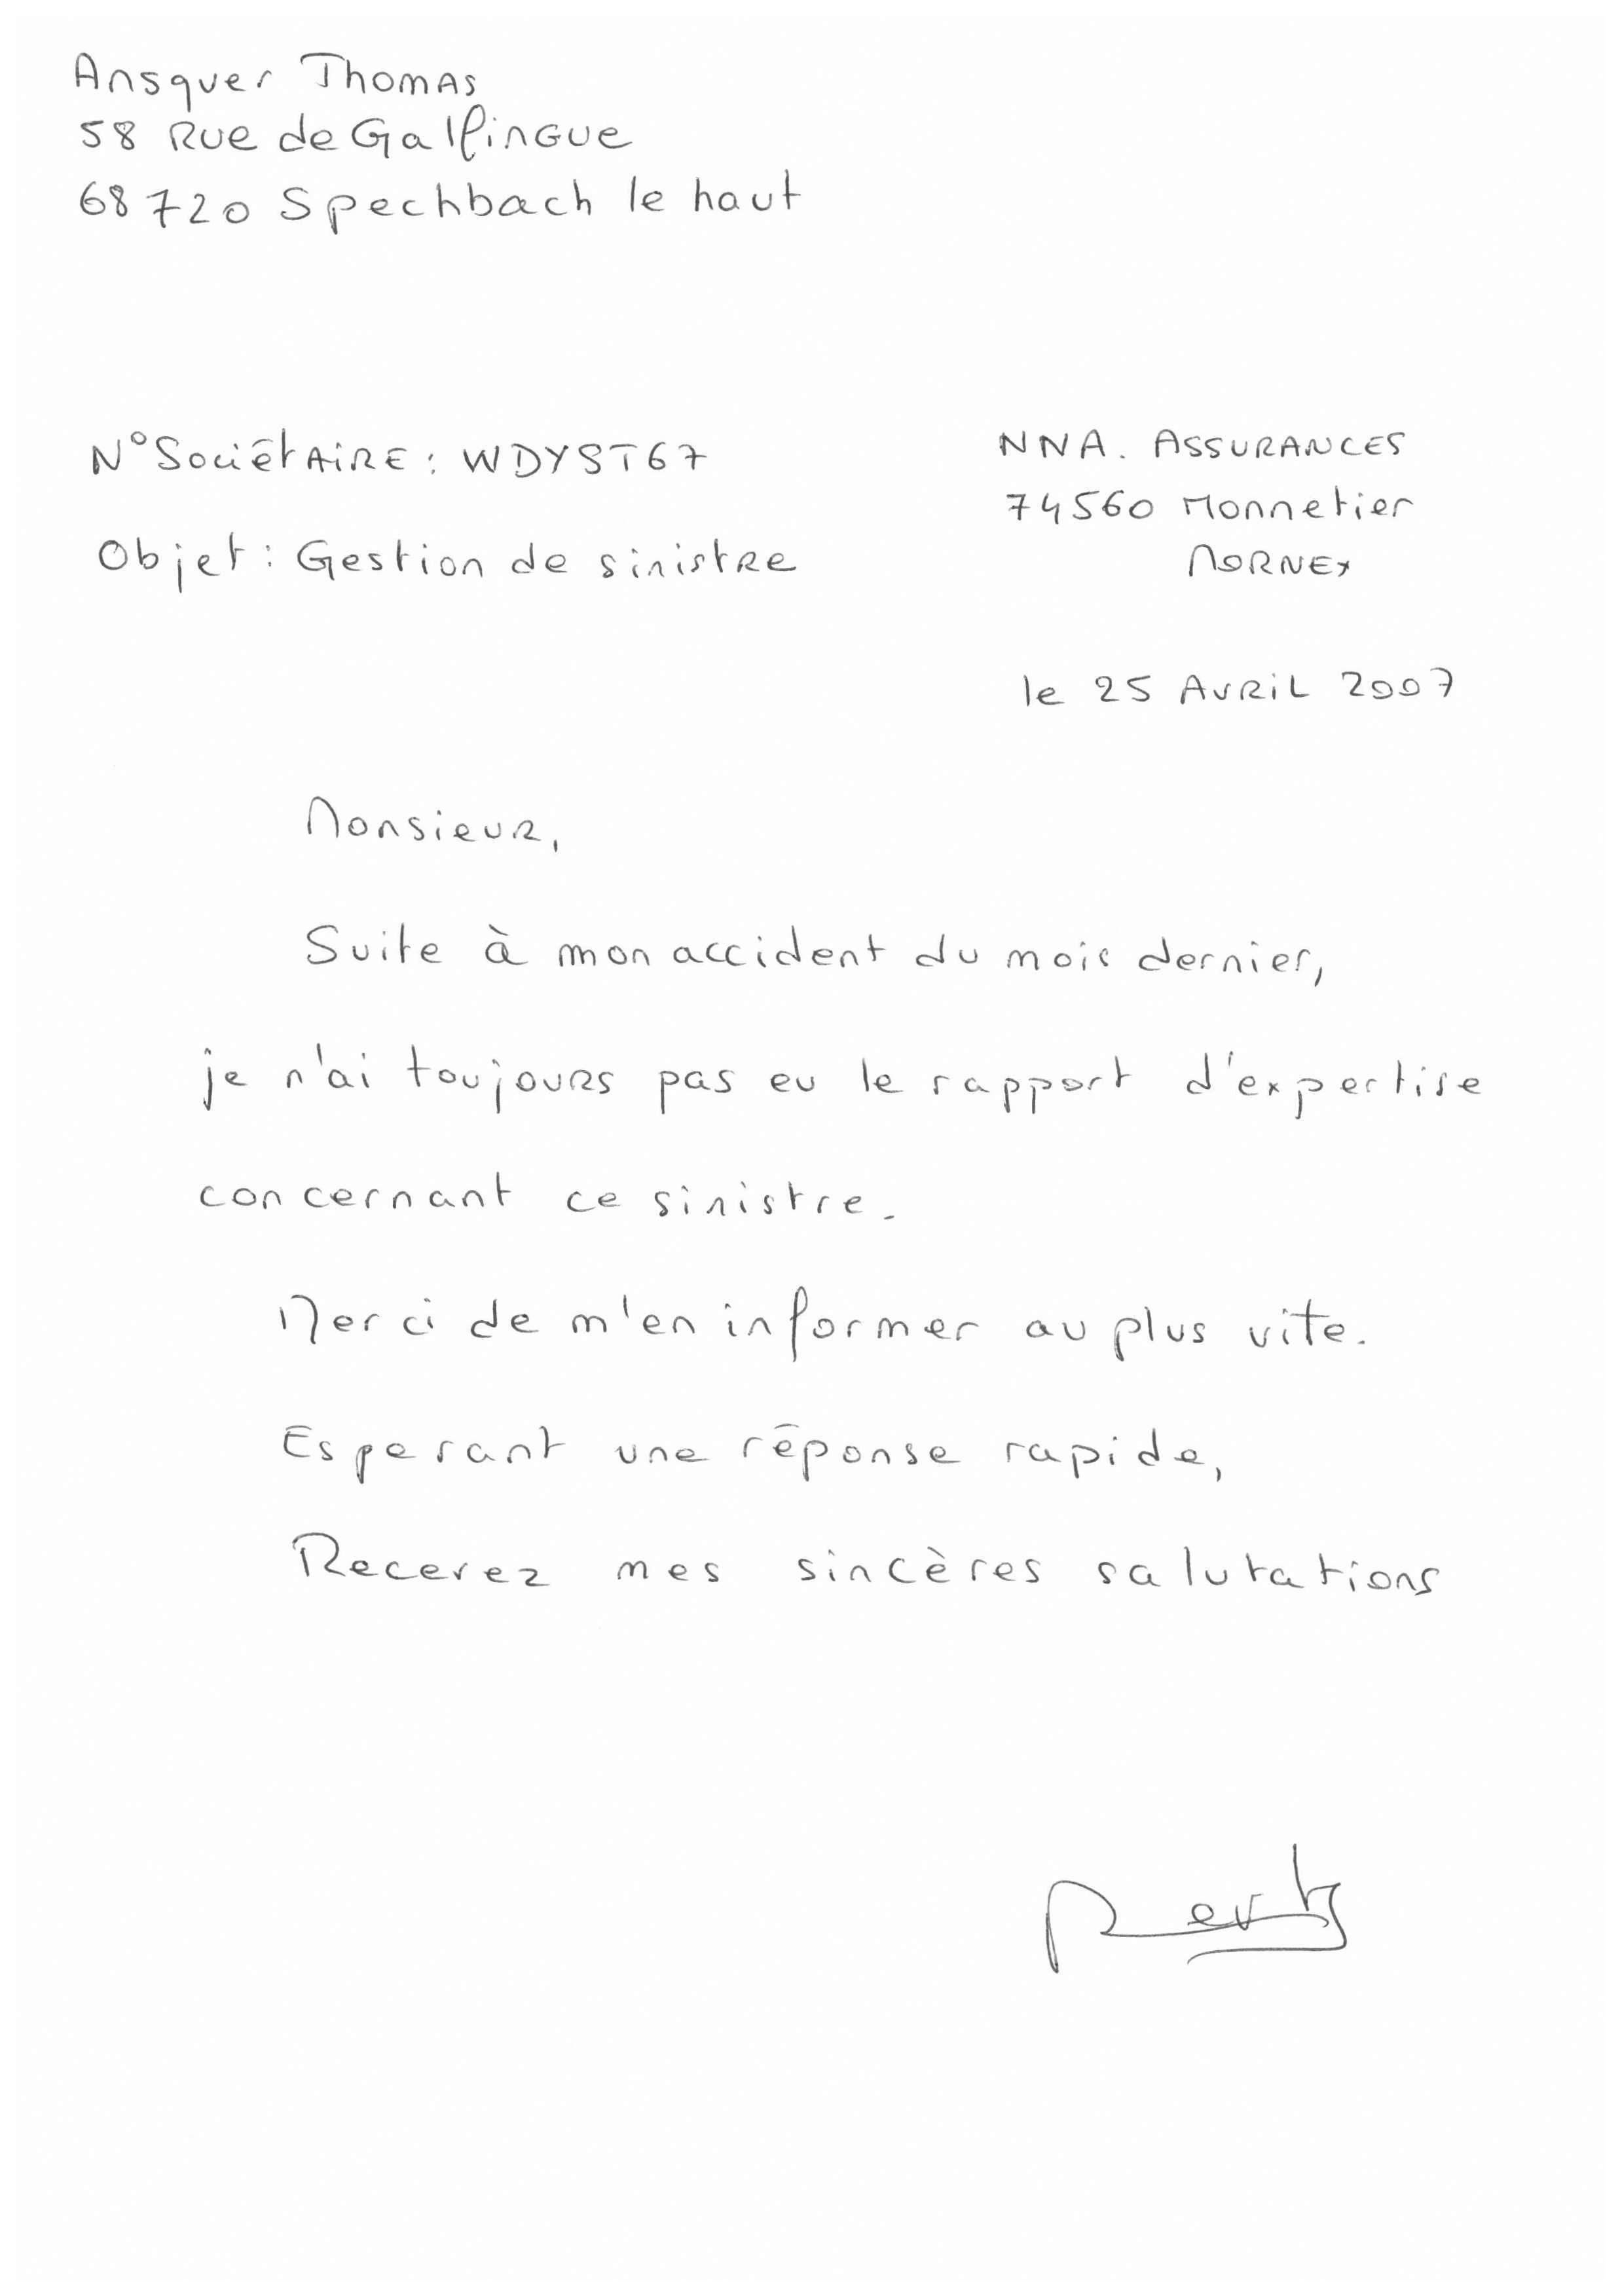 Ansquer Thomas
58 Rue de Galfingue
68720 Spechbach le haut
N° Sociétaire : WDYST67
NNA. ASSURANCES
74560 Monnetier
MORNEX
Objet : Gestion de sinistre
le 25 Avril 2007
Monsieur,
Suite à mon accident du mois dernier,
je n'ai toujours pas eu le rapport d'expertise
concernant ce sinistre.
Merci de m'en informer au plus vite.
Esperant une réponse rapide,
Recevez mes sincères salutations